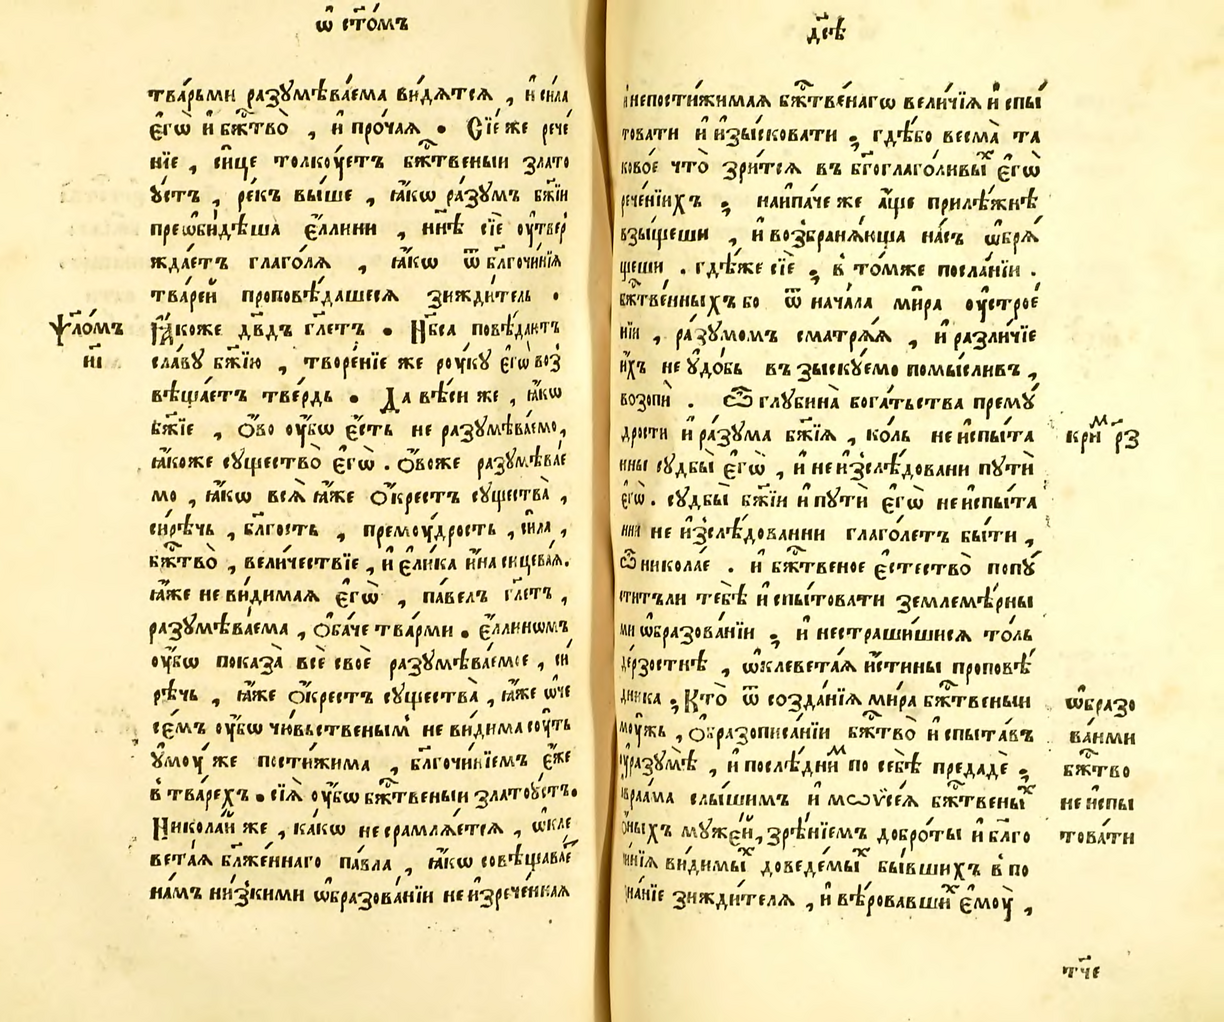 ѡ҆ ст҃о́мъ
тва́рьми разꙋмѣва́ема ви́дѧтсѧ , и҆ си́ла
є҆гѡ̀ и҆ бж҃тво̀ , и҆ про́чаѧ • Сїе́ же рече́
нїе , си́це толкꙋ́етъ бж҃твеныи злато
ꙋ́стъ , ре́къ вы́ше , ꙗ҆́кѡ ра́зꙋмъ бж҃їи
преѡби́дѣша є҆́ллини , нн҃ѣ сїѐ оу҆твер
жда́етъ глаго́лѧ , ꙗ҆́кѡ ѿ бл҃гочи́нїѧ
тва́рей проповѣ́дашесѧ зижди́тель •
Ꙗ҆́коже дв҃дъ гл҃етъ • Нб҃са повѣ́даютъ
сла́вꙋ бж҃їю , творе́нїе же роу́кꙋ є҆гѡ̀ воз
вѣща́етъ тве́рдь • Да вѣ́си же , ꙗ҆́кѡ
бж҃їе , ѻ҆́во оу҆́бѡ є҆́сть не разꙋмѣва́емо,
ꙗ҆́коже сꙋщество̀ є҆гѡ̀ . ѻ҆́воже разꙋмѣ́вае
мо , ꙗ҆́кѡ всѧ̀ ꙗ҆́же ѻ҆́крестъ сꙋщества̀ ,
си́рѣчь , бл҃гость , премоу́дрость , си́ла ,
бж҃тво̀ , вели́чествїе , и҆ є҆ли́ка и҆́на сицева́ѧ.
ꙗ҆́же неви́димаѧ є҆гѡ̀ , па́велъ гл҃етъ ,
разꙋмѣва́ема , ѻ҆ба́че тва́рми • є҆́ллинѡмъ
оу҆́бѡ показа̀ всѐ своѐ разꙋмѣва́емое , си́
рѣчь , ꙗ҆́же ѻ҆́крестъ сꙋщества̀ , ꙗ҆́же ѡ҆че
се́мъ оу҆́бѡ чю́вьственымъ не ви́дима соу́ть
ꙋ҆моу́ же пости́жима , бл҃гочи́нїемъ є҆́же
в тва́рехъ • сїѧ̀ оу҆́бѡ бж҃твеныи златоꙋ́стъ•
Никола́й же , ка́кѡ не срамлѧ́етсѧ , ѡ҆кле
вета́ѧ блаже́ннаго па́вла , ꙗ҆́кѡ совѣщава́е
на́мъ ни́зкими ѡ҆бразова́нїи неизрече́ннаѧ
ѱало́мъ
и҃і
дс҃ѣ
и҆ непости́жимаѧ бж҃твенагѡ вели́чїѧ и҆спы́
товати и҆ и҆зы́сковати ; гдѣ́бо весма̀ та
ково́е что̀ зри́тсѧ въ бг҃оглаго́ливых є҆гѡ̀
рече́нїихъ ; наипа́че же а҆́ще приле́жнѣ
взы́щеши , и҆ возбранѧ́юща на́съ ѡ҆брѧ́
щеши . гдѣ́же сїѐ ; в то́мже посла́нїи .
бж҃твенныхъ бо ѿ нача́ла ми́ра оу҆строе́
нїи , ра́зꙋмомъ сматрѧ́ѧ , и҆ разли́чїе
и҆́хъ не ꙋ҆до́бь въ зыскꙋ́емо помы́сливъ ,
возопѝ . Ѽ глꙋбина̀ бога́тьства премꙋ́
дрости и҆ ра́зꙋма бж҃їѧ , ко́ль неиспы́та
нны сꙋдбы̀ є҆гѡ̀ , и҆ неи́з̾слѣ́довани пꙋтѝ
є҆гѡ̀ . сꙋдбы̀ бж҃їи и҆ пꙋтѝ є҆гѡ̀ неиспы́та
нни не и҆з̾слѣ́дованни глаго́летъ бы́ти ,
Ѽ никола́е . и҆ бж҃твеное є҆стество̀ попꙋ́
ститъли тебѣ̀ и҆спы́товати землемѣ́рны
ми ѡ҆бразова́нїи ; и҆ нестраши́шисѧ то́ль
де́рзостнѣ , ѡ҆клевета́ѧ и҆́стины проповѣ́
дника ; Кто̀ ѿ созда́нїѧ ми́ра бж҃твеныи
моу́жь , ѻ҆бразописа́нїи бж҃тво̀ и҆спыта́въ
оу҆разꙋмѣ̀ , и҆ послѣ́днимъ по себѣ̀ предадѐ ;
авраа́ма слы́шимъ и҆ мѡѷсе́ѧ бж҃твеных
ѻ҆́ныхъ мꙋже́й, зрѣ́нїемъ добро́ты и҆ бл҃го
чинїѧ ви́димых доведе́мых бы́вшихъ в по
зна́нїе зижди́телѧ , и҆ вѣ́ровавших є҆моу̀ ,
кори́м р҃з
ѡ҆бразо
ва́нми
бж҃тво
не и҆спы
това́ти
тч҃е